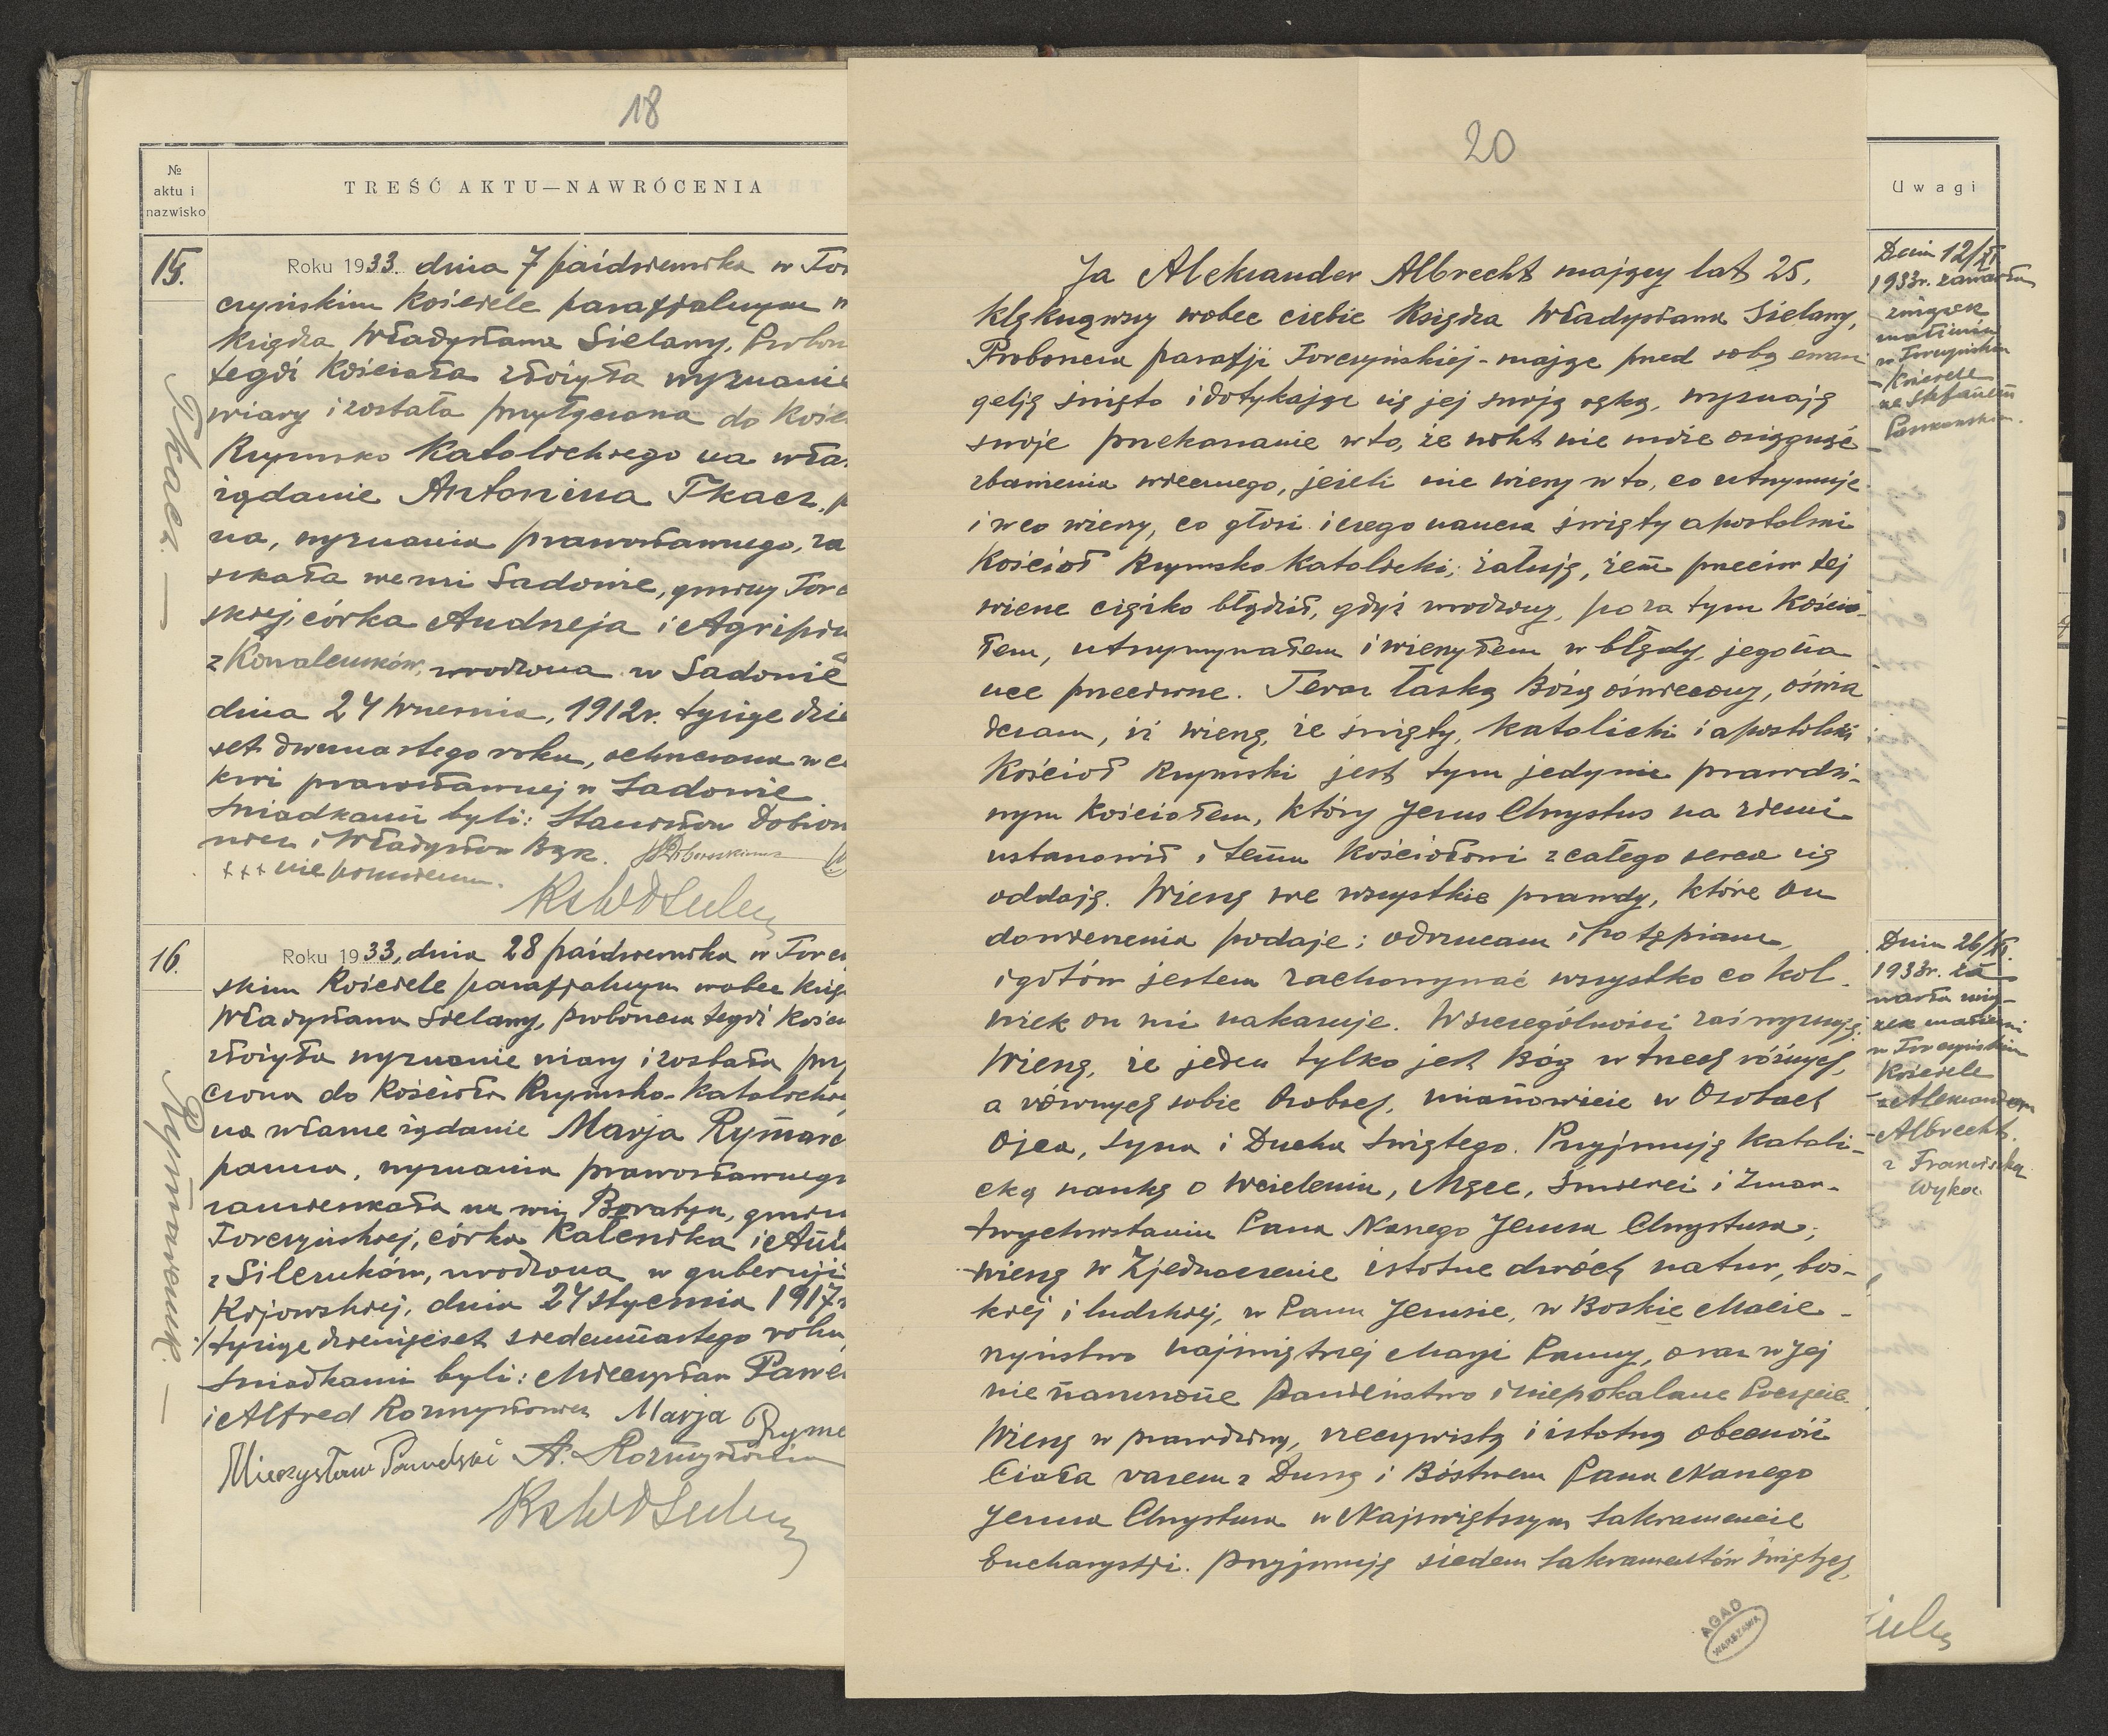 18
№ aktu i nazwisko
TREŚĆ AKTU—NAWRÓCENIA
15.
Tkacz —
Roku 1933. dnia 7 października w Tor
czyńskim kościele parafjalnym w
księdza Władysława Sielawy, Probos
tegoż Kościoła złożyła wyznanie
wiary i została przyłączona do Kośc
Rzymsko Katolickiego na włas
żądanie Antonina Tkacz, p
na, wyznania prawosławnego, za
szkała we wsi Sadowie, gminy Torc
skiej, córka Andrzeja i Agripin
z Kowalczuków, urodzona w Sadowie
dnia 24 września, 1912r. tysiąc dzie
set dwunastego roku, ochrzczona w ce
rkwi prawosławnej w Sadowie
Świadkami byli: Stanisław Dobron
i Władysław Bąk.
+++ nie piśmienna.
16.
Rymarczuk. —
Roku 1933, dnia 28 października w Torczy
skim Kościele parafjalnym wobec księ
Władysława Sielawy, proboszcza tegoż Kości
złożyła wyznanie wiary i została przy
czona do Kościoła Rzymsko-Katolickie
na własne żądanie Marja Rymarc
panna, wyznania prawosławnego
zamieszkała we wsi Boratyn, gminy
Torczyńskiej, córka Kalenika i
z Silczuków, urodzona w gubernji
Kijowskiej, dnia 24 stycznia 1917r
tysiąc dziewięćset siedemnastego roku,
Świadkami byli: Mieczysław Pawe
i Alfred Rozmysłowicz Marja Ryma
Mieczysław Pawelski A. Rozmysłowicz
20
Ja Aleksander Albrecht mający lat 25,
klęknąwszy wobec ciebie Księdza Władysława Sielawy,
Proboszcza parafji Torczyńskiej - mając przed sobą ewan
gelję świętą i dotykając się jej swoją ręką, wyznaję
swoje przekonanie w to, że nikt nie może osiągnąć
zbawienia wiecznego, jeżeli nie wierzy w to, co utrzymuje
i w co wierzy, co głosi i czego naucza święty apostolski
Kościół Rzymsko Katolicki; żałuję, żem przeciw tej
wierze ciężko błądził, gdyż urodzony, poza tym Kościo-
łem, utrzymywałem i wierzyłem w błędy, jego na
uce przeciwne. Teraz łaską Bożą oświecony, oświa
dczam, iż wierzę, że święty, katolicki i apostolski
Kościół Rzymski jest tym jedynie prawdzi-
wym Kościołem, który Jezus Chrystus na ziemi
ustanowił i temu Kościołowi z całego serca się
oddaję. Wierzę we wszystkie prawdy, które On
do wierzenia podaje; odrzucam i potępiam,
i gotów jestem zachowywać wszystko co kol-
wiek on mi nakazuje. W szczególności zaś wyznaję:
Wierzę, że jeden tylko jest Bóg w trzech różnych,
a równych sobie Osobach, mianowicie w Osobach
Ojca, Syna i Ducha Świętego. Przyjmuję Katoli-
cką naukę o Wcieleniu, Męce, Śmierci i Zmar-
twychwstaniu Pana Naszego Jezusa Chrystusa;
wierzę w Zjednoczenie istotne dwóch natur, bos-
kiej i ludzkiej, w Panu Jezusie, w Boskie Macie-
rzyństwo najświętszej Maryi Panny, oraz w Jej
nienaruszone Panieństwo i niepokalane Poczęcie.
Wierzę w prawdziwą, rzeczywistą i istotną obecność
Ciała razem z Duszą i Bóstwem Pana Naszego
Jezusa Chrystusa w Najświętszym Sakramencie
Eucharystji. przyjmuję siedem Sakramentów Świętych,
AGAD
WARSZAWA
Uwagi
Dnia 12/XI
1933r. zawarła
związek
małżeński
w Torczyńskim
Kościele
ze Stefanem
Dnia 26/XI.
1933r. za
warła zwią-
zek małżeński
w Torczyńskim
Kościele
z Aleksandrem
Albrecht.
z Franciszka
Wyka